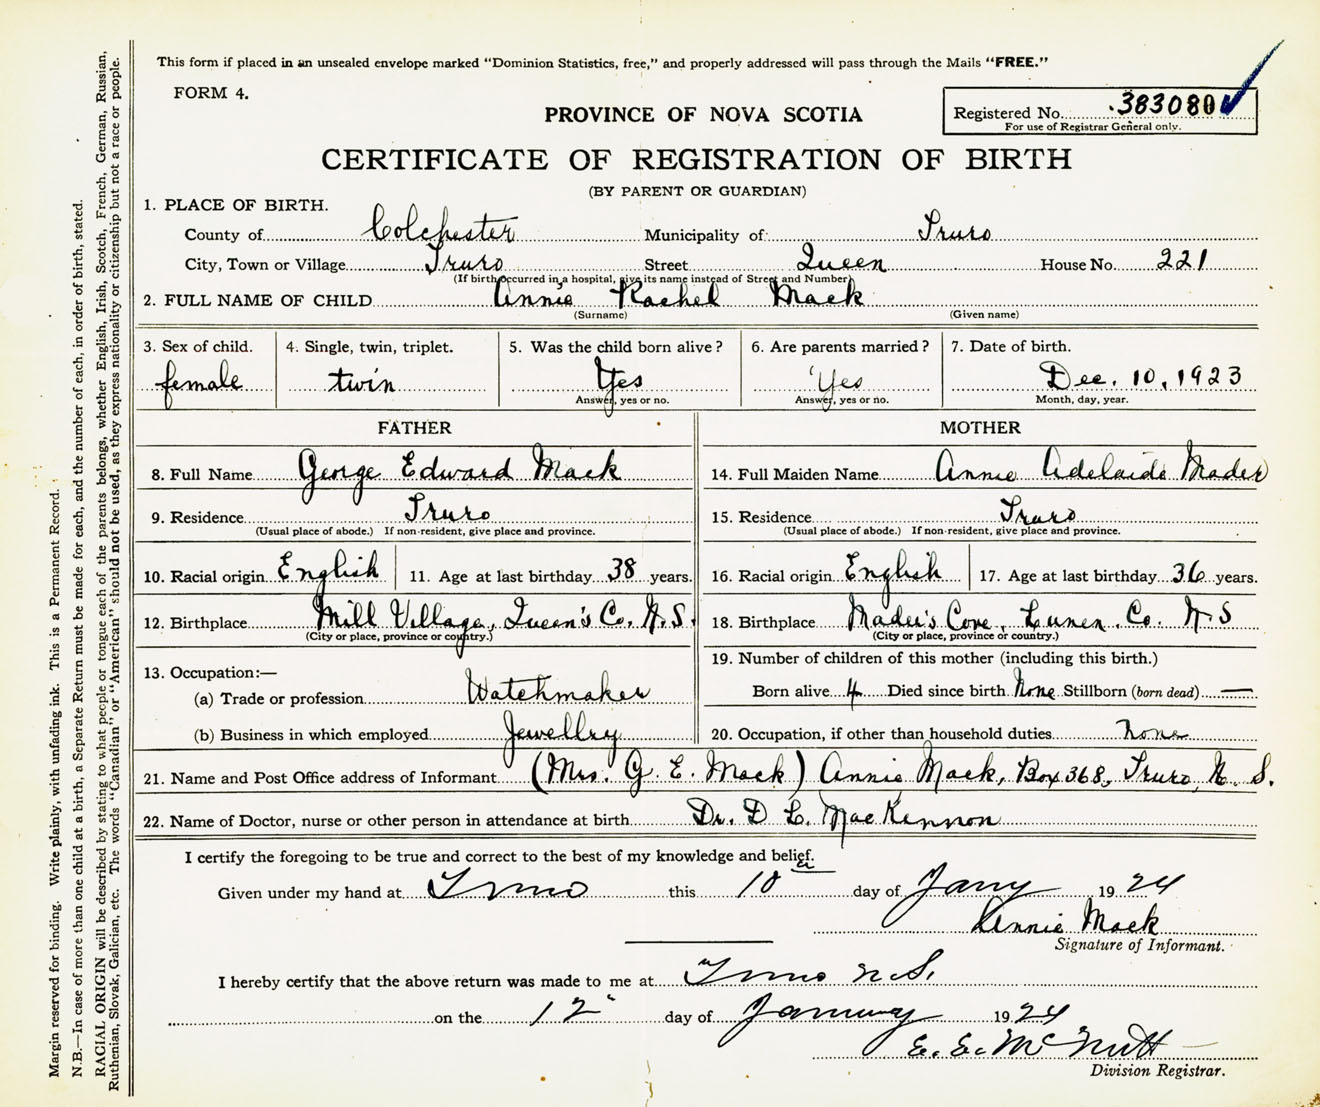 This form if placed in an unsealed envelope marked "Dominion Statistics, free," and properly addressed will pass through the Mails "FREE."
FORM 4.
PROVINCE OF NOVA SCOTIA
Registered No. 383080
For use of Registrar General only.
CERTIFICATE OF REGISTRATION OF BIRTH
(BY PARENT OR GUARDIAN)
1. PLACE OF BIRTH.
County of Colchester Municipality of Truro
City, Town or Village Truro Street Queen House No. 221
(If birth occurred in a hospital, give its name instead of Street and Number)
2. FULL NAME OF CHILD Annie Rachel Mack
(Surname) (Given name)
3. Sex of child. 4. Single, twin, triplet. 5. Was the child born alive? 6. Are parents married? 7. Date of birth.
female twin Yes Yes Dec. 10, 1923
Answer, yes or no. Answer, yes or no. Month, day, year.
FATHER MOTHER
8. Full Name George Edward Mack 14. Full Maiden Name Annie Adelaide Mader
9. Residence Truro 15. Residence Truro
(Usual place of abode.) If non-resident, give place and province. (Usual place of abode.) If non-resident, give place and province.
10. Racial origin English 11. Age at last birthday 38 years. 16. Racial origin English 17. Age at last birthday 36 years.
12. Birthplace Mill Village, Queen's Co. N.S. 18. Birthplace Mader's Cove, Lunen. Co. N S
(City or place, province or country.) (City or place, province or country.)
13. Occupation:— 19. Number of children of this mother (including this birth.)
(a) Trade or profession Watchmaker Born alive 4 Died since birth None Stillborn (born dead) —
(b) Business in which employed Jewellry 20. Occupation, if other than household duties None
21. Name and Post Office address of Informant (Mrs. G. E. Mack) Annie Mack, Box 368, Truro, N. S.
22. Name of Doctor, nurse or other person in attendance at birth Dr. D L. MacKennon
I certify the foregoing to be true and correct to the best of my knowledge and belief.
Given under my hand at Truro this 10th day of Jany 1924
Annie Mack
Signature of Informant.
I hereby certify that the above return was made to me at Truro N.S.
on the 12" day of January 1924
E. E. McNutt
Division Registrar.
Margin reserved for binding. Write plainly, with unfading ink. This is a Permanent Record.
N.B.—In case of more than one child at a birth, a Separate Return must be made for each, and the number of each, in order of birth, stated.
RACIAL ORIGIN will be described by stating to what people or tongue each of the parents belongs, whether English, Irish, Scotch, French, German, Russian,
Ruthenian, Slovak, Galician, etc. The words "Canadian" or "American" should not be used, as they express nationality or citizenship but not a race or people.